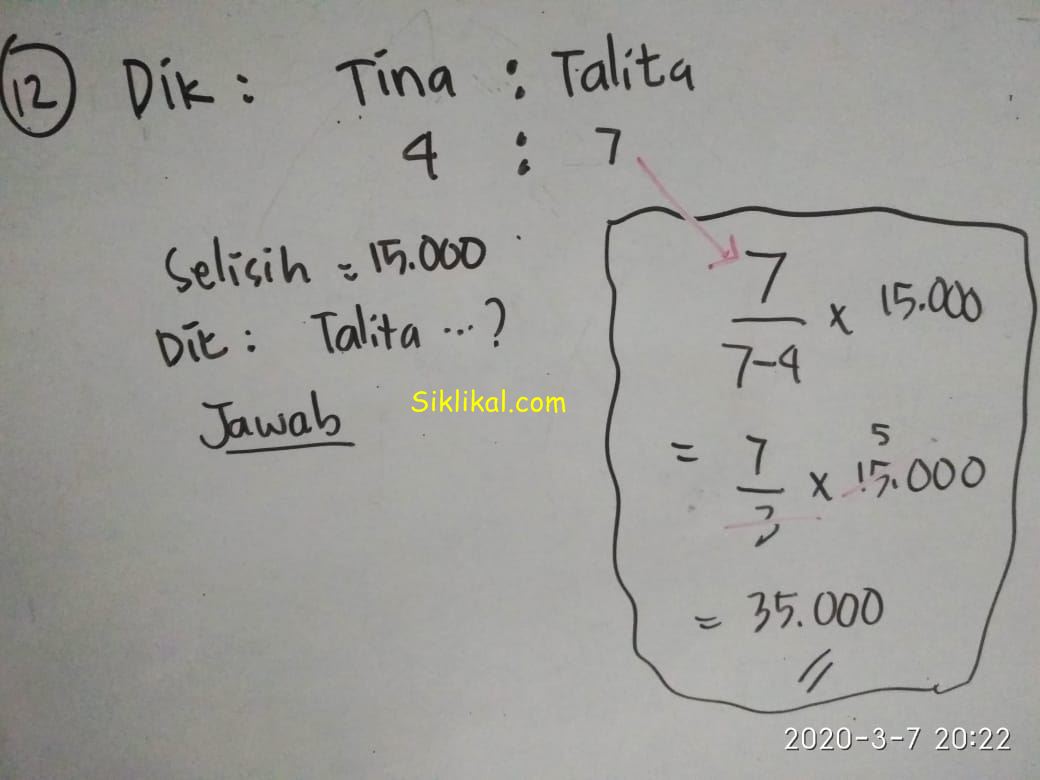 12 Dik : Tina : Talita
4 : 7
Selisih = 15.000
Dit : Talita ...?
Jawab
Siklikal.com
7
7-4 x 15.000
= 7
3 x 15.000
5
= 35.000
2020-3-7 20:22